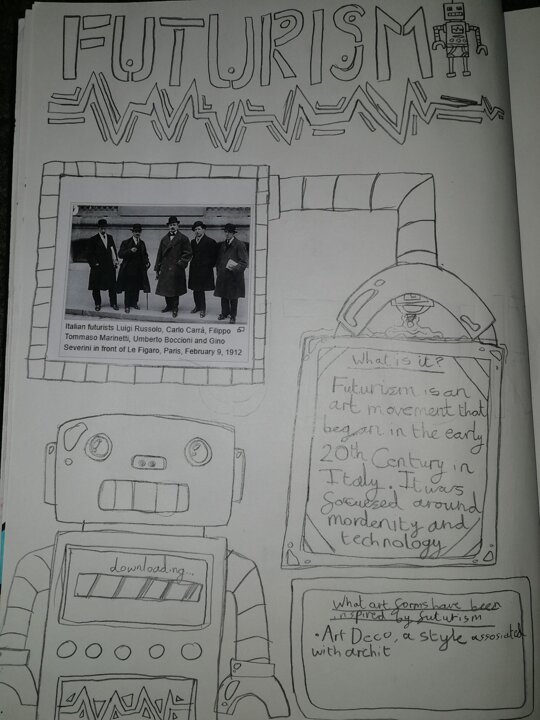 FUTURISM
Italian futurists Luigi Russolo, Carlo Carrà, Filippo
Tommaso Marinetti, Umberto Boccioni and Gino
Severini in front of Le Figaro, Paris, February 9, 1912
What is it?
Futurism is an
art movement that
began in the early
20th Century in
Italy. It was
focussed around
mordenity and
technology
downloading...
What art forms have been
inspired by futurism
• Art Deco, a style assosiated
with archit